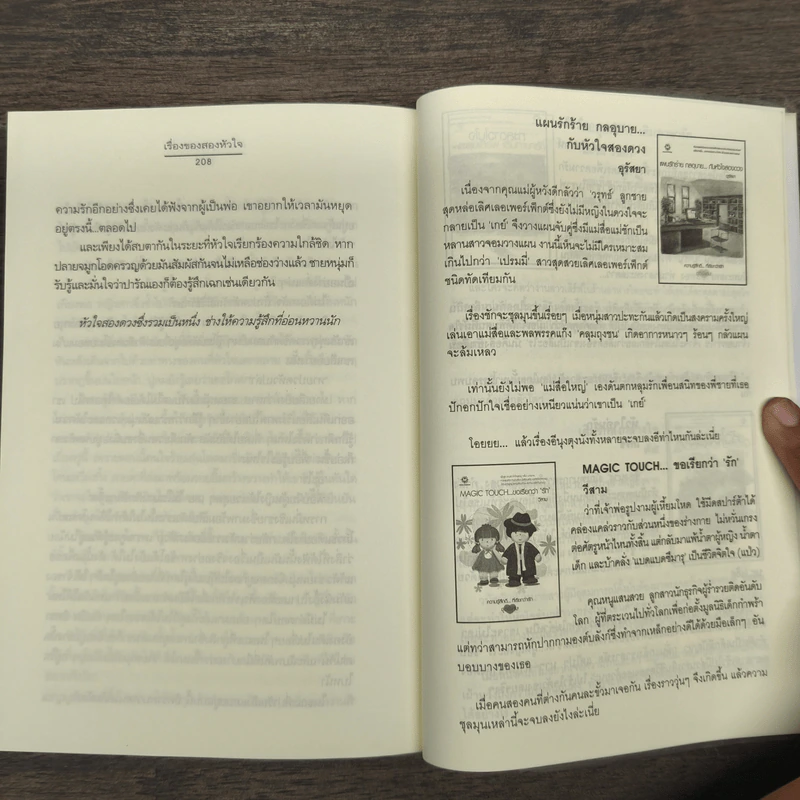 เรื่องของสองหัวใจ
208
ความรักอีกอย่างซึ่งเคยได้ฟังจากผู้เป็นพ่อ เขาอยากให้เวลามันหยุด
อยู่ตรงนี้...ตลอดไป
และเพียงได้สบตากันในระยะที่หัวใจเรียกร้องความใกล้ชิด หาก
ปลายจมูกโอดครวญด้วยมันสัมผัสกันจนไม่เหลือช่องว่างแล้ว ชายหนุ่มก็
รับรู้และมั่นใจว่าปารัณเองก็ต้องรู้สึกเฉกเช่นเดียวกัน
หัวใจสองดวงซึ่งรวมเป็นหนึ่ง ช่างให้ความรู้สึกที่อ่อนหวานนัก
แผนรักร้าย กลอุบาย...
กับหัวใจสองดวง
อุรัสยา
เนื่องจากคุณแม่ผู้หวังดีกลัวว่า 'วรุทธ์' ลูกชาย
สุดหล่อเลิศเลอเพอร์เฟ็กต์ซึ่งยังไม่มีหญิงในดวงใจจะ
กลายเป็น 'เกย์' จึงวางแผนจับคู่ซึ่งมีแม่สื่อแม่ชักเป็น
หลานสาวจอมวางแผน งานนี้เห็นจะไม่มีใครเหมาะสม
เกินไปกว่า 'เปรมมี่' สาวสุดสวยเลิศเลอเพอร์เฟ็กต์
ชนิดทัดเทียมกัน
เรื่องชักจะชุลมุนขึ้นเรื่อยๆ เมื่อหนุ่มสาวปะทะกันแล้วเกิดเป็นสงครามครั้งใหญ่
เล่นเอาแม่สื่อและพลพรรคแก๊ง 'คลุมถุงชน' เกิดอาการหนาวๆ ร้อนๆ กลัวแผน
จะล้มเหลว
เท่านั้นยังไม่พอ 'แม่สื่อใหญ่' เองดันตกหลุมรักเพื่อนสนิทของพี่ชายที่เธอ
ปักอกปักใจเชื่ออย่างเหนียวแน่นว่าเขาเป็น 'เกย์'
โอยยย... แล้วเรื่องอีนุงตุงนังทั้งหลายจะจบลงอีท่าไหนกันล่ะเนี่ย
แผนรักร้าย กลอุบาย...กับหัวใจสองดวง
อุรัสยา
MAGIC TOUCH... ขอเรียกว่า 'รัก'
วีสาม
ว่าที่เจ้าพ่อรูปงามผู้เหี้ยมโหด ใช้มีดสปาร์ต้าได้
คล่องแคล่วราวกับส่วนหนึ่งของร่างกาย ไม่หวั่นเกรง
ต่อศัตรูหน้าไหนทั้งสิ้น แต่กลับมาแพ้น้ำตาผู้หญิง น้ำตา
เด็ก และบ้าคลั่ง 'แบดแบดซึมารุ' เป็นชีวิตจิตใจ (แป่ว)
คุณหนูแสนสวย ลูกสาวนักธุรกิจผู้ร่ำรวยติดอันดับ
โลก ผู้ที่ตระเวนไปทั่วโลกเพื่อก่อตั้งมูลนิธิเด็กกำพร้า
แต่ทว่าสามารถหักปากกามองต์บลังก์ซึ่งทำจากเหล็กอย่างดีได้ด้วยมือเล็กๆ อัน
บอบบางของเธอ
เมื่อคนสองคนที่ต่างกันคนละขั้วมาเจอกัน เรื่องราววุ่นๆ จึงเกิดขึ้น แล้วความ
ชุลมุนเหล่านี้จะจบลงยังไงล่ะเนี่ย
MAGIC TOUCH...ขอเรียกว่า 'รัก'
วีสาม